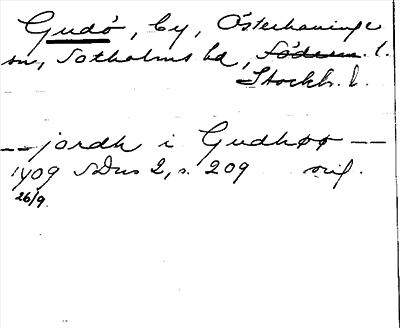 Gudö, by, Österhaninge
sn, Sotholms hd, Söderm. l.
Stockh. l.
-- jordh i Gudhøø --
1409 SDns 2, s. 209 orig.
26/9.